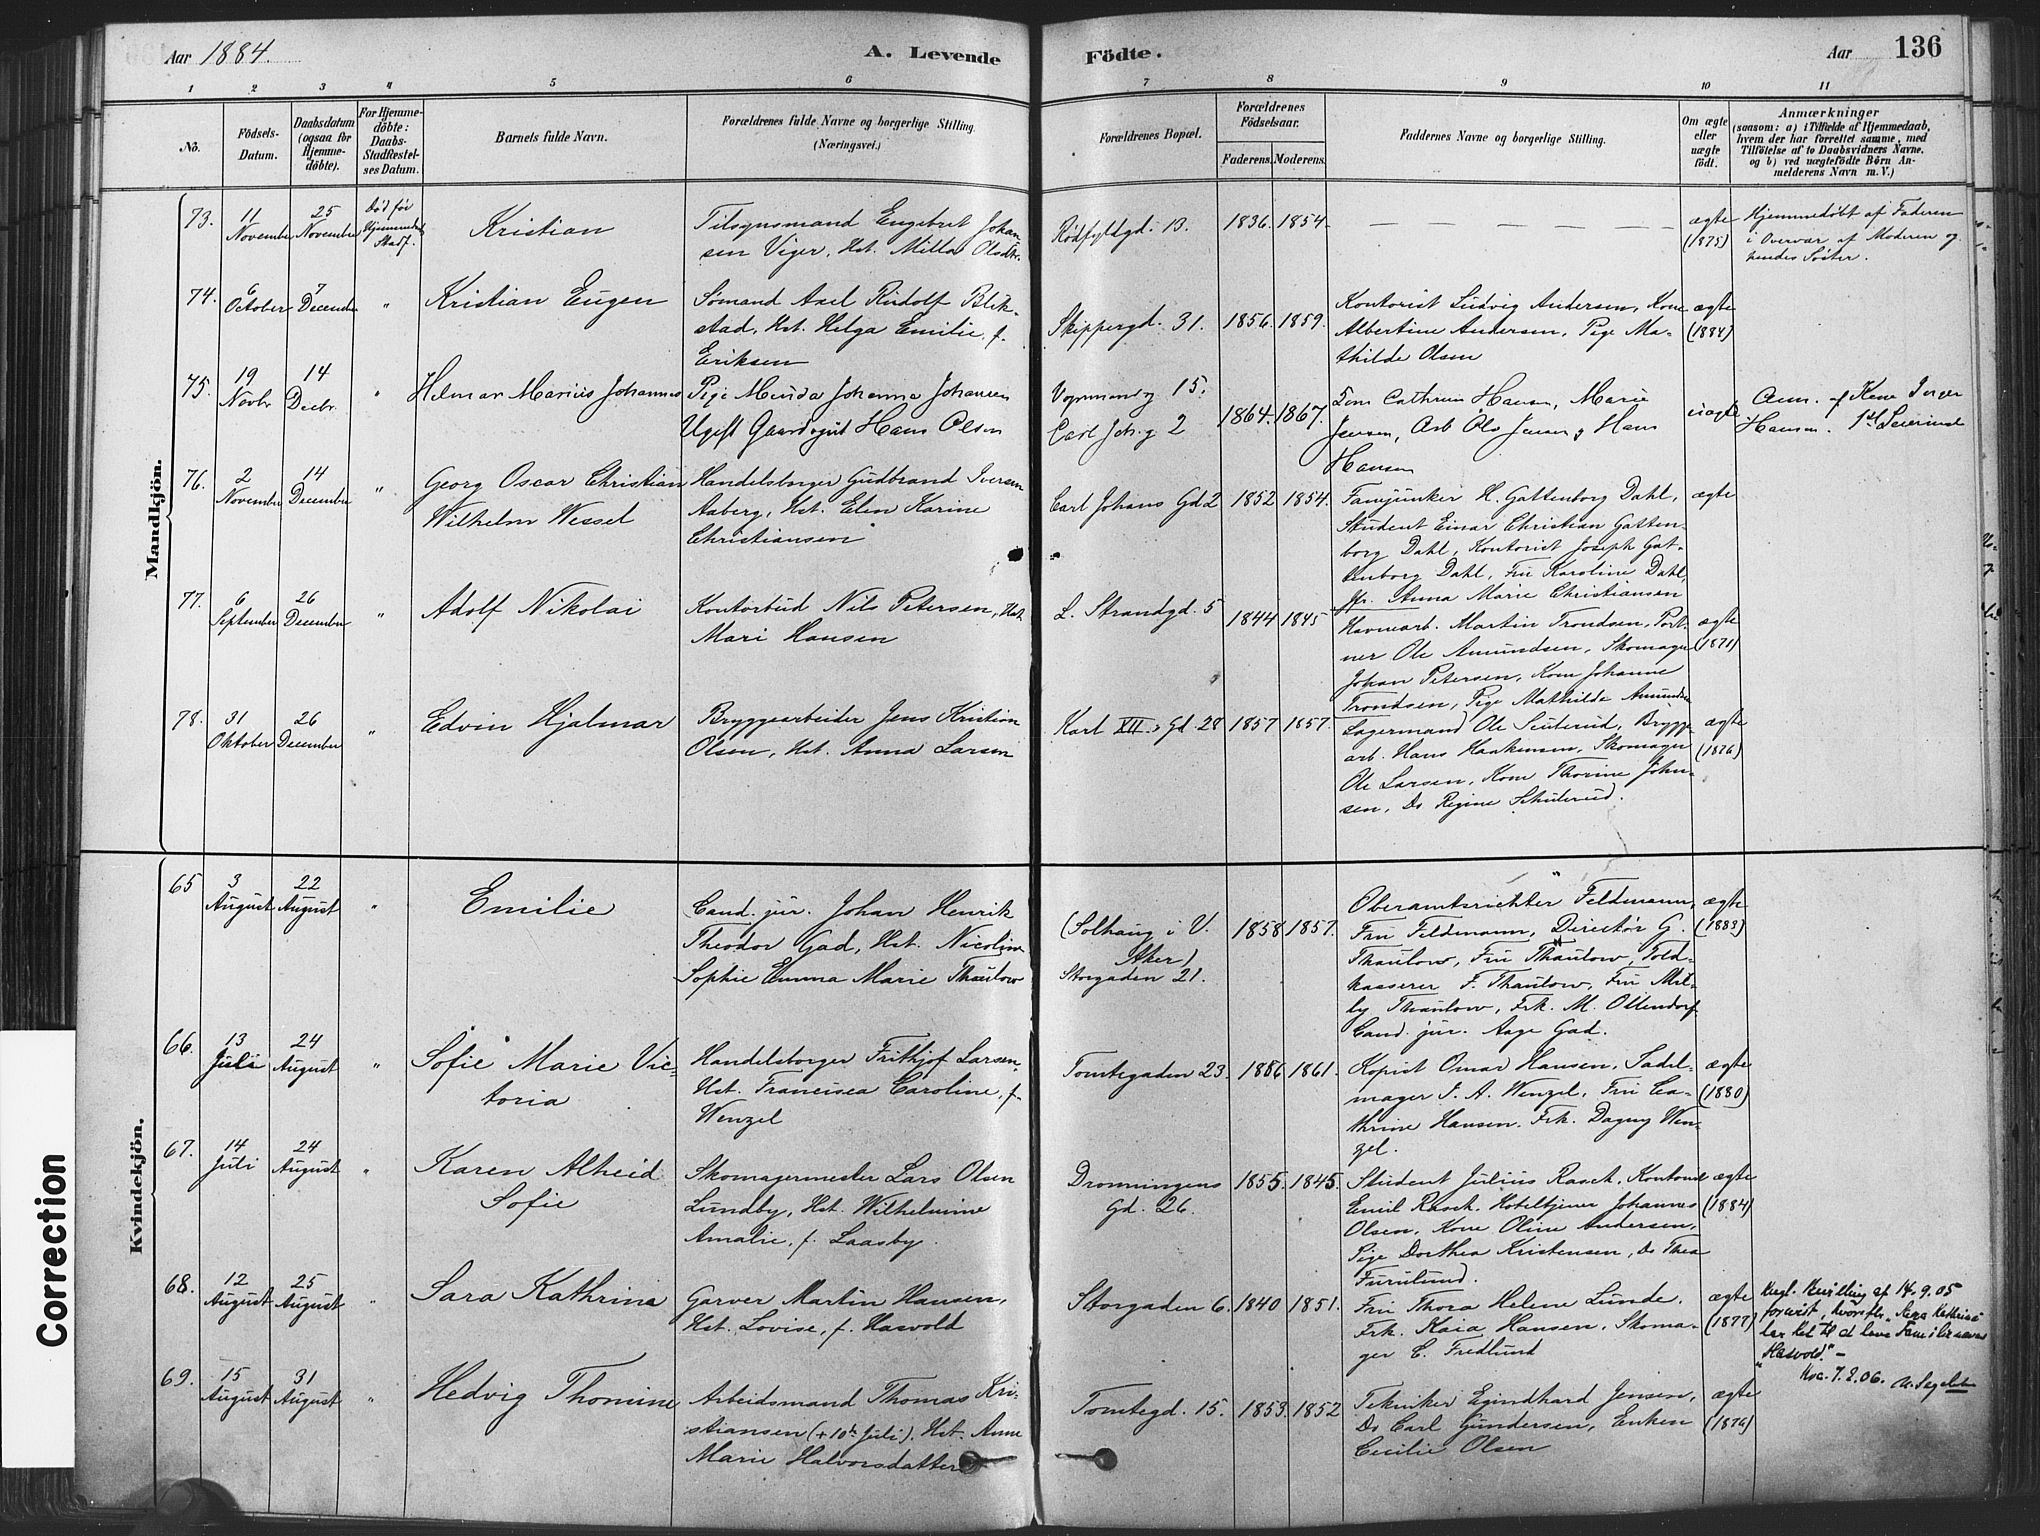 Aar 1884.
A. Levende Födte.
Aar
136
1 2 3 4 5 6 7 8 9 10 11
No.
Födsels-
Datum.
Daabsdatum
(ogsaa for
Hjemme-
döbte).
For Hjemme-
döbte:
Daabs-
Stadfæstel-
ses Datum.
Barnets fulde Navn.
Forældrenes fulde Navne og borgerlige Stilling.
(Næringsvei.)
Forældrenes Bopæl.
Forældrenes
Födselsaar.
Faderens. Moderens.
Faddernes Navne og borgerlige Stilling.
Om ægte
eller
uægte
födt.
Anmærkninger
(saasom: a) i Tilfælde af Hjemmedaab,
hvem der har forrettet samme, med
Tilföielse af to Daabsvidners Navne,
og b) ved uægtefödte Börn An-
melderens Navn m. V.)
Mandkjön.
73.
11
November
25
November
Död før
Hjemmedaab
Stadf.
Kristian
Tilsynsmand Engebret Johan-
sen Viger, Hst. Milla Olsdtr.
Rödfyldgd. 13.
1836. 1854.
— — — — —
ægte
(1875)
Hjemmedöbt af Faderen
i Overvær af Moderen og
hendes Söster.
74.
6
October
7
December
"
Kristian Eugen
Sömand Axel Rudolf Blik-
stad, Hst. Helga Emilie, f.
Eriksen
Skippergd. 31.
1856. 1859.
Kontorist Ludvig Andersen, Kone
Albertine Andersen, Pige Ma-
thilde Olsen
ægte
(1884)
75.
19
Novbr
14
Decbr.
"
Helmar Marius Johannes
Pige Minda Johanna Johansen
Ugift Gaardsgut Hans Olsen
Vognmandsg 15.
Carl Joh. g 2
1864. 1867.
Tom Cathrin Hansen, Marie
Jensen, Arb Ole Jensen, Hans
Hansen
uægte
Anm. af Kone Inger
Hansen.
76.
2
November
14
December
"
Georg Oscar Christian
Wilhelm Wessel
Handelsborger Gudbrand Iversen
Aaberg, Hst. Elen Karine
Christiansen
Carl Johans Gd 2
1852 1854.
Fanejunker H. Gattenborg Dahl,
Student Einar Christian Gatten-
borg Dahl, Kontorist Joseph Gat-
tenborg Dahl, Fru Karoline Dahl,
Fr. Anna Marie Christiansen
ægte
77.
6
September
26
December
"
Adolf Nikolai
Kontorbud Nils Petersen, Hst
Mari Hansen
L. Strandgd. 5
1844 1845
Havnearb. Martin Trondsen, Port-
ner Ole Amundsen, Skomager
Johan Petersen, Kone Johanne
Trondsen, Pige Mathilde Amundsen
ægte
(1871)
78.
31
Oktober
26
December
"
Edvin Hjalmar
Bryggearbeider Jens Kristian
Olsen, Hst. Anna Larsen
Karl XII.s Gd 28
1857 1857.
Lagermand Ole Seuterud, Brygge-
arb. Hans Haakensen, Skomager
Ole Larsen, Kone Thorine John-
sen, Do Regine Schuterud.
ægte
(1876)
Kvindekjön.
65
3
August
22
August
"
Emilie
Cand. jur. Johan Henrik
Theodor Gad, Hst. Nicoline
Sophie Emma Marie Thaulow
(Solhaug i V.
Aker)
Storgaden 21.
1858 1857.
Oberamtsrichter Feldmann,
Fru Feldmann, Direktör G.
Thaulow, Fru Thaulow, Told-
kasserer F. Thaulow, Fru Mil-
ly Thaulow, Frk. M. Ollendorf
Cand. jur. Aage Gad.
ægte
(1883)
66.
13
Juli
24
August
"
Sofie Marie Vic-
toria
Handelsborger Frithjof Larsen,
Hst. Francisca Caroline, f.
Wenzel
Tomtegaden 23.
1886 1861.
Kopist Omar Hansen, Sadel-
mager F. A. Wenzel, Fru Ca-
thrine Hansen. Frk. Dagny Wen-
zel.
ægte
(1880)
67.
14
Juli
24
August
"
Karen Alheid
Sofie
Skomagermester Lars Olsen
Lundby, Hst. Wilhelmine
Amalie, f. Laasby.
Dronningens
Gd. 26.
1855. 1845.
Student Julius Rasch, Kontorist
Emil Rasch, Hoteltjener Johannes
Olsen, Kone Oline Andersen,
Pige Dorthea Kristensen, Do Thea
Furulund.
ægte
(1884)
68.
12
August
25
August
"
Sara Kathrine
Garver Martin Hansen,
Hst. Lovise, f. Hasvold
Storgaden 6.
1840 1851.
Fru Thora Helene Lunde.
Frk. Kaia Hansen, Skoma-
ger C. Fredlund
ægte
(1877)
Kngl. Bevilling af 14.9.05
forevist, hvorefter Sara Kathrine
har Ret til at bære Familienavnet
"Hasvold." –
Kra. 7.2.06.
69.
15
August
31
August
"
Hedvig Thomine
Arbeidsmand Thomas Kri-
stiansen (+ 10de Juli). Hst. Anne
Marie Halvorsdatter
Tomtegd. 15.
1853. 1852
Tekniker Egindhard Jensen,
Do Carl Gundersen, Enken
Cecilie Olsen
ægte
(1876)
Correction